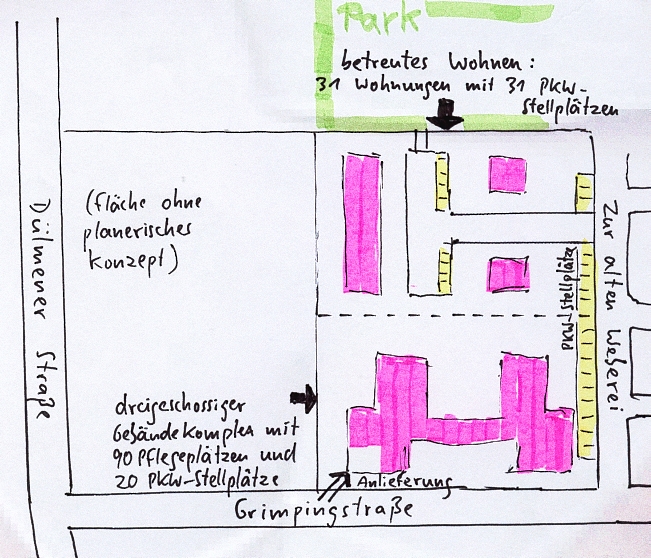 Park
betreutes Wohnen:
31 Wohnungen mit 31 PKW-
Stellplätzen
(fläche ohne
planerisches
Konzept)
Dülmener Straße
Zur alten Weberei
PKW-Stellplätze
dreigeschossiger
Gebäudekomplex mit
90 Pflegeplätzen und
20 PKW-Stellplätze
Anlieferung
Grimpingstraße